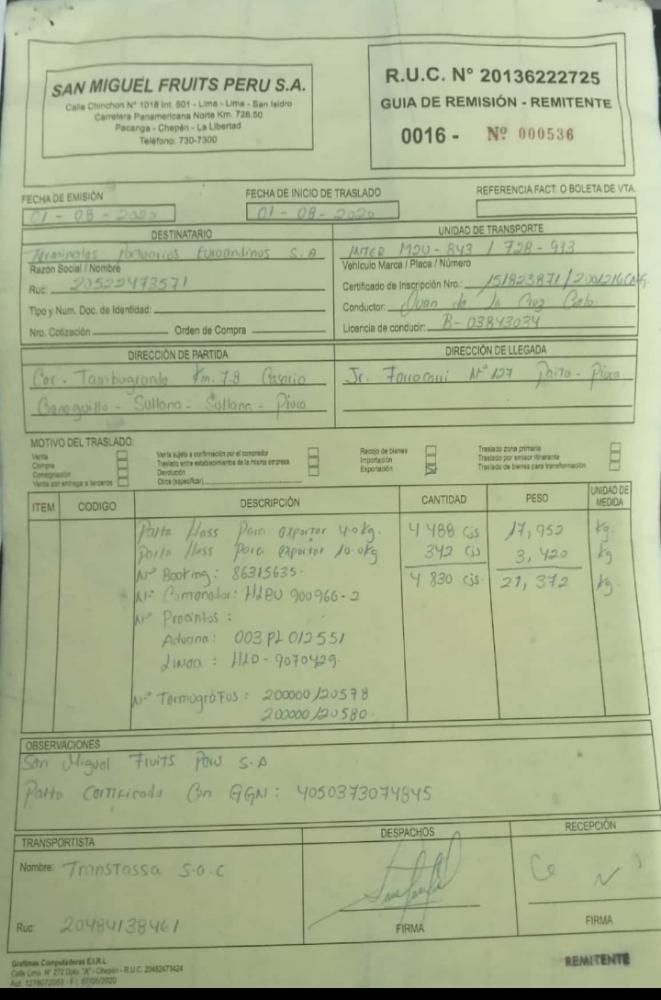 SAN MIGUEL FRUITS PERU S.A.
Calle Chinchon Nº 1018 Int. 501 - Lima - Lima - San Isidro
Carretera Panamericana Norte Km. 728.50
Pacanga - Chepén - La Libertad
Teléfono: 730-7300
R.U.C. Nº 20136222725
GUIA DE REMISIÓN - REMITENTE
0016 - Nº 000536
FECHA DE EMISIÓN
01 - 08 - 2020
FECHA DE INICIO DE TRASLADO
01 - 08 - 2020
REFERENCIA FACT. O BOLETA DE VTA.
DESTINATARIO
Terminales Portuarios Euroandinos S.A
Razón Social / Nombre
Ruc: 20522473571
Tipo y Num. Doc. de Identidad:
Nro. Cotización Orden de Compra
UNIDAD DE TRANSPORTE
INTER M2U-843 / 728-973
Vehículo Marca / Placa / Número
Certificado de Inscripción Nro.: 151823871 /
Conductor: Juan de la Cruz
Licencia de conducir: B-03843034
DIRECCIÓN DE PARTIDA
Car. Tambogrande Km. 7.8 Caserio
- Sullana - Sullana - Piura
DIRECCIÓN DE LLEGADA
Jr. Ferrocarril Nº 127 Paita - Piura
MOTIVO DEL TRASLADO:
Venta
Compra
Consignación
Venta por entrega a terceros
Venta sujeta a confirmación por el comprador
Traslado entre establecimientos de la misma empresa
Devolución
Otros (especificar)
Recojo de bienes
Importación
Exportación
Traslado zona primaria
Traslado por emisor itinerante
Traslado de bienes para transformación
ITEM CODIGO DESCRIPCIÓN CANTIDAD PESO UNIDAD DE MEDIDA
Palta Hass Para exportar 4.0kg. 4 488 cjs 17,952 kg.
Palta Hass para exportar 10.0kg 342 cjs 3,420 kg
Nº Booking: 86315635. 4 830 cjs. 21,372 kg.
Nº Contenedor: HLBU 900966-2
Nº Precintos:
Aduana: 003 PL 012551
Linea: HLD-9070429.
Nº Termografos: 200000/20578
200000/20580.
OBSERVACIONES
San Miguel Fruits Perú S.A
Palta Certificada Con GGN: 4050373074845
TRANSPORTISTA
Nombre: Transtassa S.a.c
Ruc: 20484138461
DESPACHOS
FIRMA
RECEPCIÓN
FIRMA
Grafimas Computadoras E.I.R.L.
Calle Lima Nº 272 Dpto. "A" - Chepén - R.U.C. 20482473424
REMITENTE